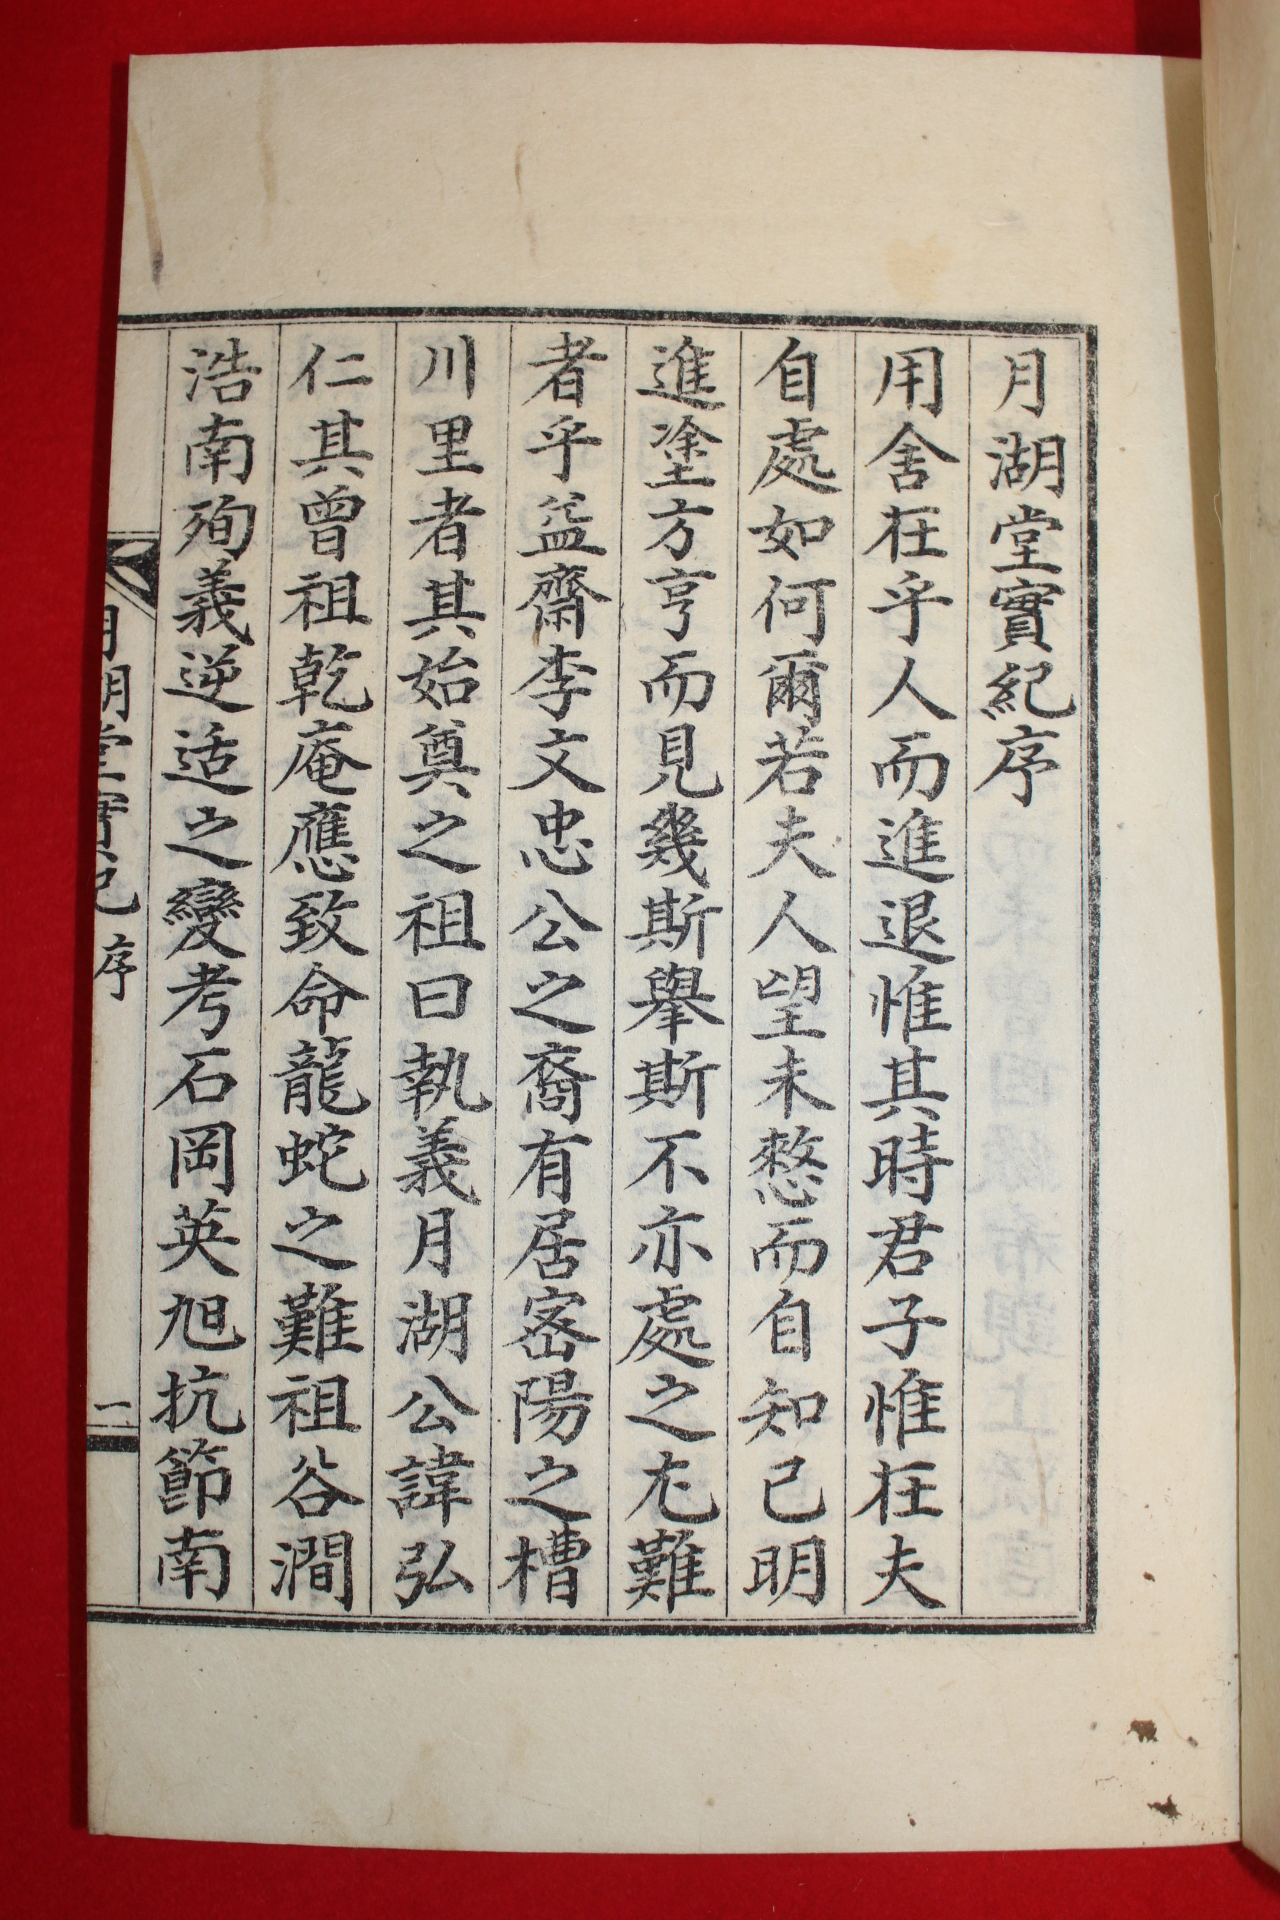 月湖堂實紀序
用舍在乎人而進退惟其時君子惟在夫
自處如何爾若夫人望未憖而自知己明
進塗方亨而見幾斯擧斯不亦處之尤難
者乎益齋李文忠公之裔有居密陽之槽
川里者其始奠之祖曰執義月湖公諱弘
仁其曾祖乾庵應致命龍蛇之難祖谷澗
浩南殉義逆适之變考石岡英旭抗節南
月湖堂實紀 序
一